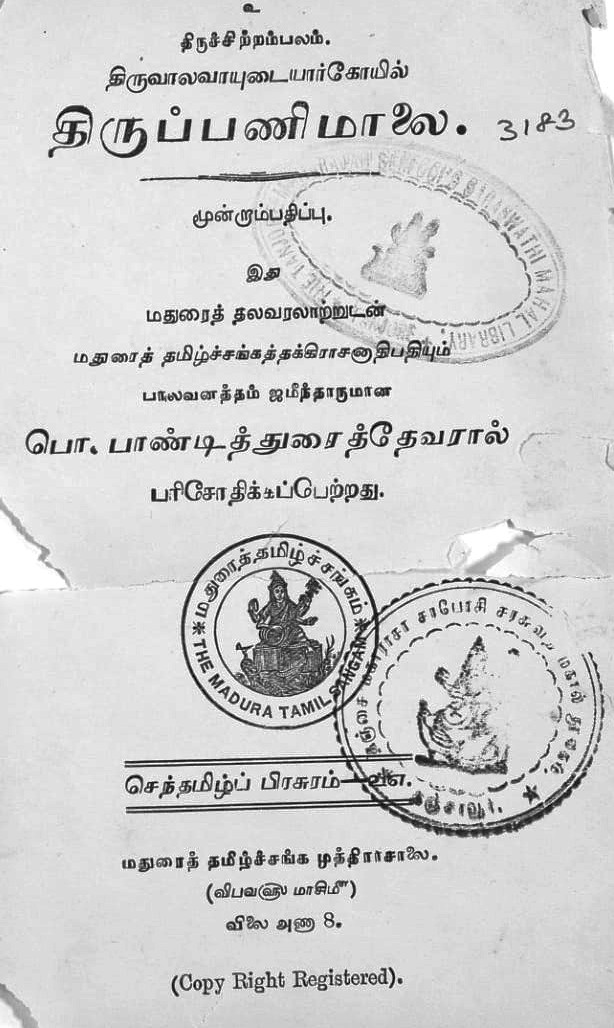 உ
திருச்சிற்றம்பலம்.
திருவாலவாயுடையார்கோயில்
திருப்பணிமாலை.
3183
மூன்றாம்பதிப்பு.
இது
மதுரைத் தலவரலாற்றுடன்
மதுரைத் தமிழ்ச்சங்கத்தக்கிராசனாதிபதியும்
பாலவனத்தம் ஜமீந்தாருமான
பொ. பாண்டித்துரைத்தேவரால்
பரிசோதிக்கப்பெற்றது.
மதுரைத்தமிழ்ச்சங்கம்
THE MADURA TAMIL SANGAM
SARASWATHI MAHAL LIBRARY
மகாராசா சரபோசி சரசுவதி மகால் நூலகம்
தஞ்சாவூர்.
செந்தமிழ்ப் பிரசுரம்—
மதுரைத் தமிழ்ச்சங்க முத்திராசாலை.
(விபவ மாசிமீ)
விலை அணா 8.
(Copy Right Registered).